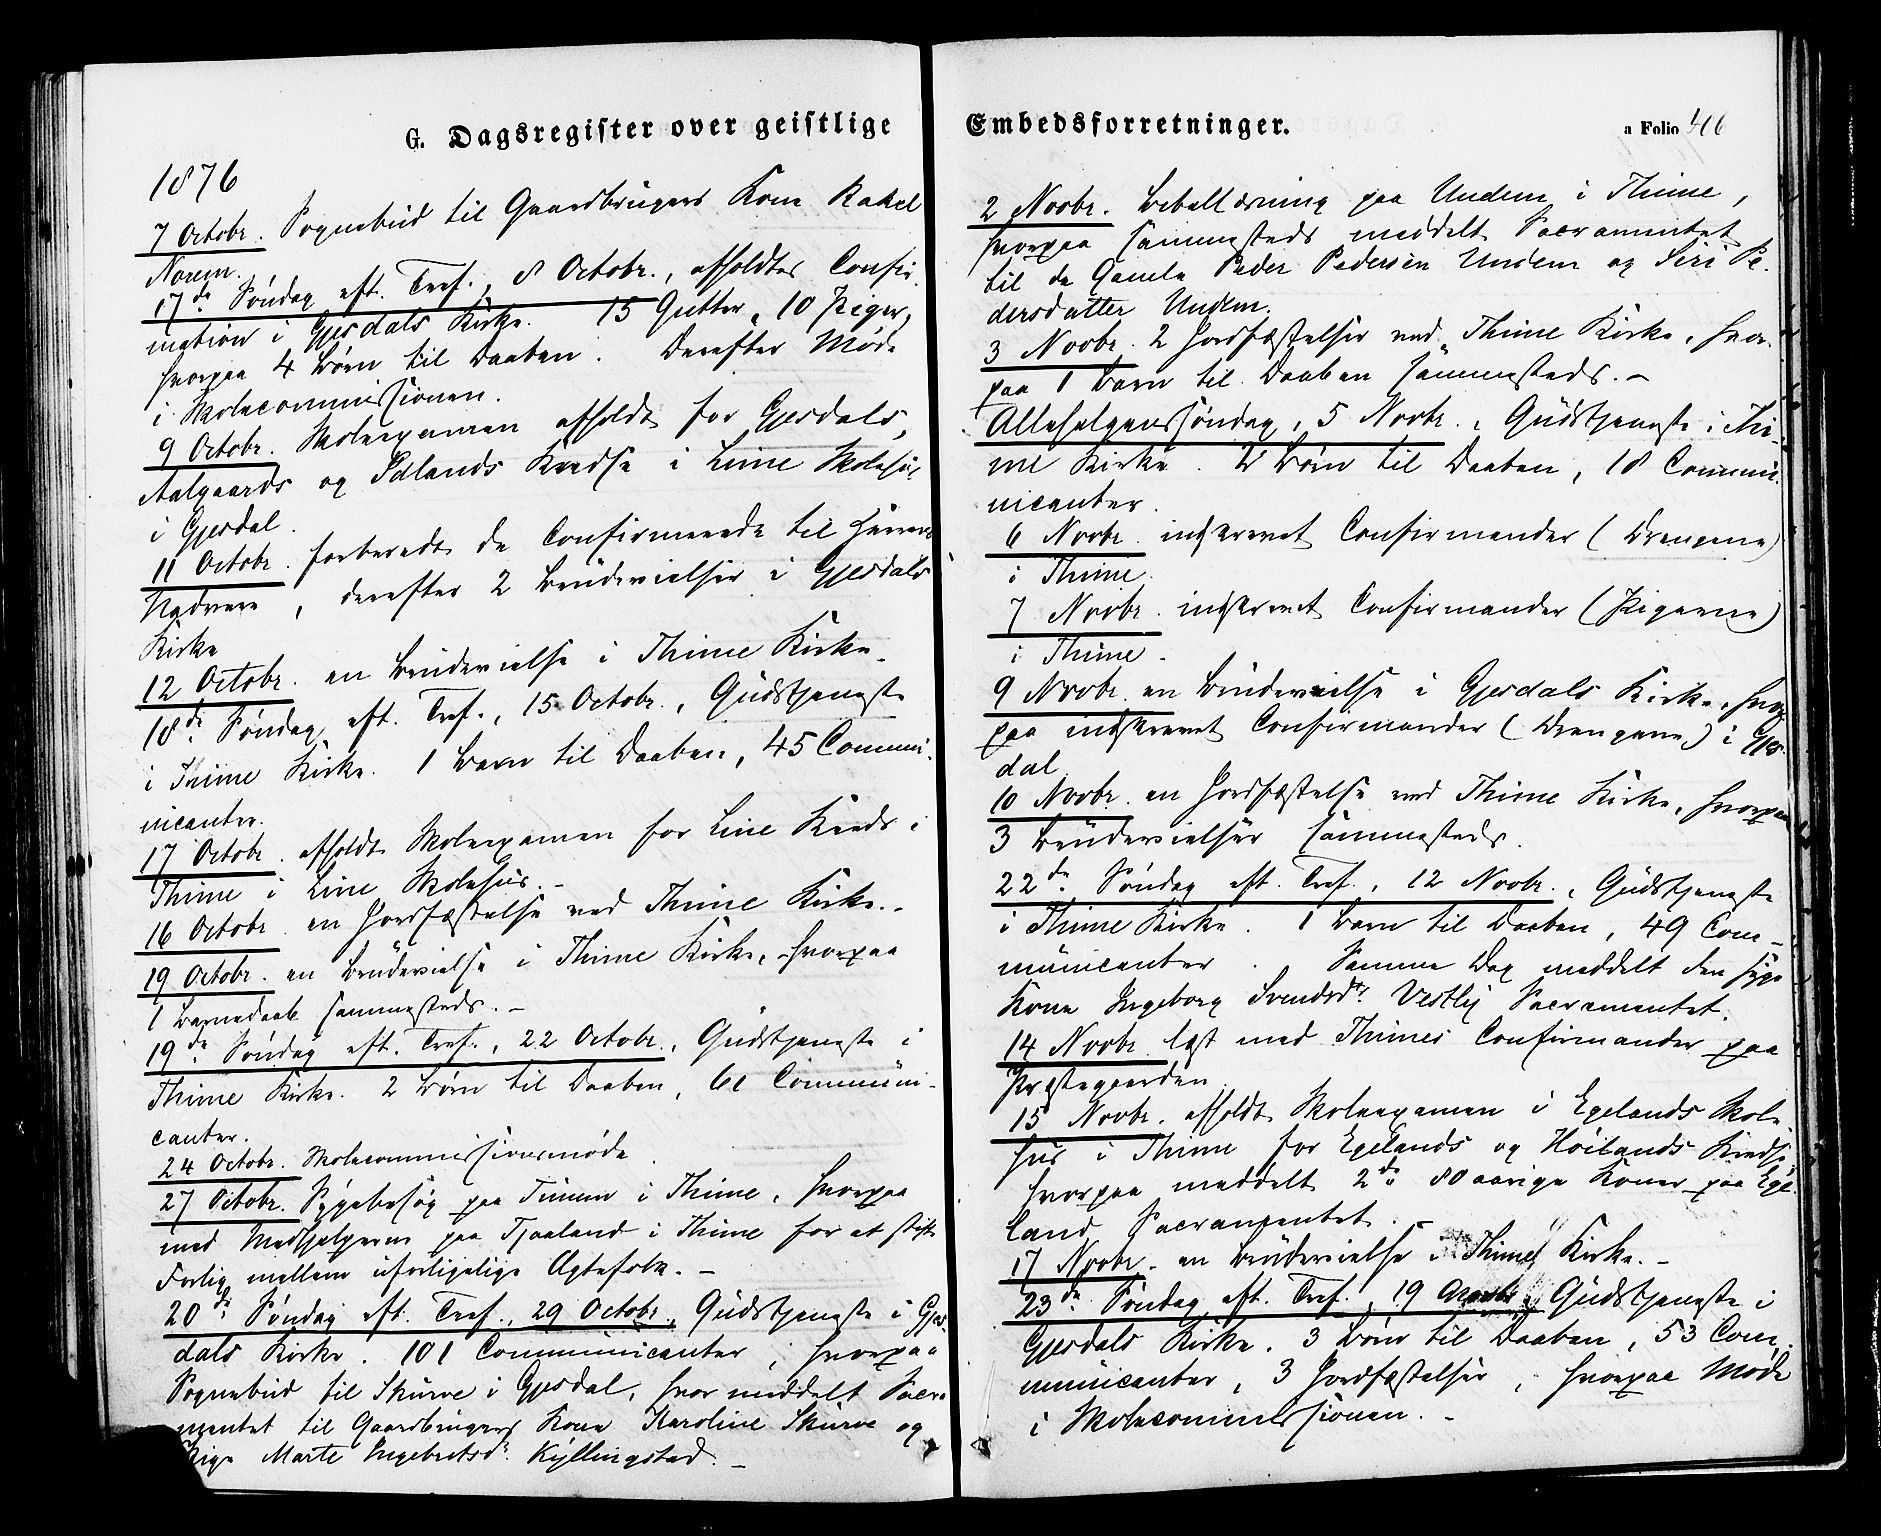 G. Dagsregister over geistlige
1876
7 Octobr. Sognebud til Gaardbrugers Kone Rakel
Norem.
17de Søndag eft. Tref., 8 Octobr., afholdtes Confir-
mation i Gjesdals Kirke. 15 Gutter, 10 Piger,
hvorpaa 4 Børn til Daaben. Derefter Møde
i Skolecommissionen.
9 Octobr. Skoleexamen afholdt for Gjesdals,
Aalgaards og Kredse i Lime Skolehus
i Gjesdal.
11 Octobr. forberedt de Confirmerede til Herrens
Nadvere, derefter 2 Brudevielser i Gjesdals
Kirke
12 Octobr. en Brudevielse i Thime Kirke.
18de Søndag eft. Tref., 15 Octobr., Gudstjeneste
i Thime Kirke. 1 Barn til Daaben, 45 Commu-
nicanter.
17 Octobr. afholdt Skoleexamen for Line Kreds i
Thime i Line Skolehus.-
16 Octobr. en Jordfæstelse ved Thime Kirke.-
19 Octobr. en Brudevielse i Thime Kirke, hvorpaa
1 Barnedaab sammesteds.-
19de Søndag eft. Tref., 22 Octobr., Gudstjeneste i
Thime Kirke. 2 Børn til Daaben, 61 Communi-
canter.
24 Octobr. Skolecommissionsmøde.
27 Octobr. Sygebesøg paa i Thime, hvorpaa
med Medhjælperne paa Tjaaland i Thime for at stifte
Forlig mellem uforligelige Ægtefolk.-
20de Søndag eft. Tref., 29 Octobr., Gudstjeneste i Gjes-
dals Kirke. 101 Communicanter, hvorpaa
Sognebud til Skurve i Gjesdal, hvor meddelt Sacra
mentet til Gaardbrugers Kone Karoline Skurve og
Pige Marte Engebretsdr. Kyllingstad.-
Embedsforretninger.
a Folio 416
2 Novbr. Ligbeging paa Undem i Thime,
hvorpaa sammesteds meddelt Sacramentet
til de Gamle Peder Pedersen Undem og Siri Pe-
dersdatter Undem.
3 Novbr. 2 Jordfæstelser ved Thime Kirke, hvor-
paa 1 Barn til Daaben sammesteds.-
Allehelgenssøndag, 5 Novbr., Gudstjeneste i Thi-
me Kirke. 2 Børn til Daaben, 18 Commu-
nicanter.
6 Novbr. indskrevet Confirmander (Drengene)
i Thime.
7 Novbr. indskrevet Confirmander (Pigerne)
i Thime.
9 Novbr. en Brudevielse i Gjesdals Kirke, hvor
paa indskrevet Confirmander (Drengene) i Gjes-
dal.
10 Novbr. en Jordfæstelse ved Thime Kirke, hvorpaa
3 Brudevielser sammesteds.
22de Søndag eft. Tref., 12 Novbr., Gudstjeneste
i Thime Kirke. 1 Barn til Daaben, 49 Com-
municanter. Samme Dag meddelt den syge
Kone Ingeborg Svendsdr. Vestly Sacramentet.
14 Novbr. læst med Thimes Confirmander paa
Præstegaarden.
15 Novbr. afholdt Skoleexamen i Egelands Skole
hus i Thime for Egelands og Høilands Kredse
hvorpaa meddelt 2de 80aarige Koner paa Ege-
land Sacramentet.
17 Novbr. en Brudevielse i Thime Kirke.-
23de Søndag eft. Tref., 19 Novbr., Gudstjeneste i
Gjesdals Kirke. 3 Børn til Daaben, 53 Com-
municanter, 3 Jordfæstelser, hvorpaa Møde
i Skolecommissionen.-